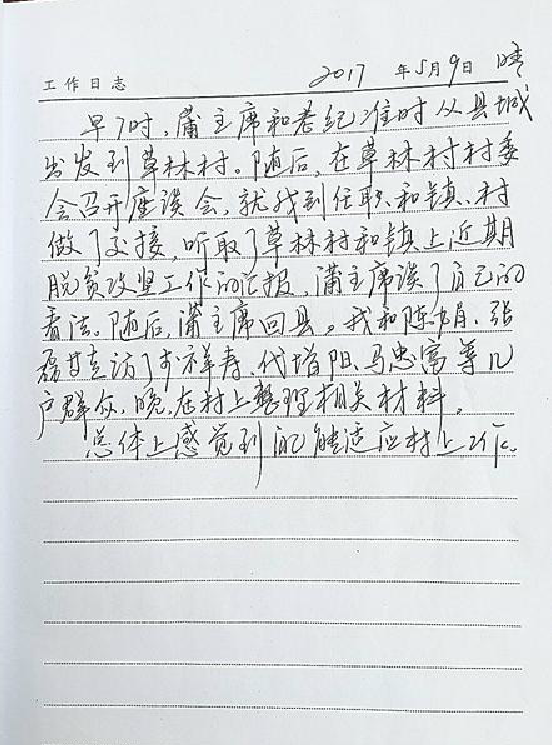 工作日志 2017 年 5月9日 晴
早7时,蒲主席和老纪准时从县城
出发到草林村。随后,在草林村村委
会召开座谈会,就我到任职和镇、村
做了交接,听取了草林村和镇上近期
脱贫攻坚工作的汇报,蒲主席谈了自己的
看法。随后,蒲主席回县。我和陈娟、张
磊等走访了祥寿、代增阳、马忠富等几
户群众,晚,在村上整理相关材料。
总体上感觉到能适应村上工作。